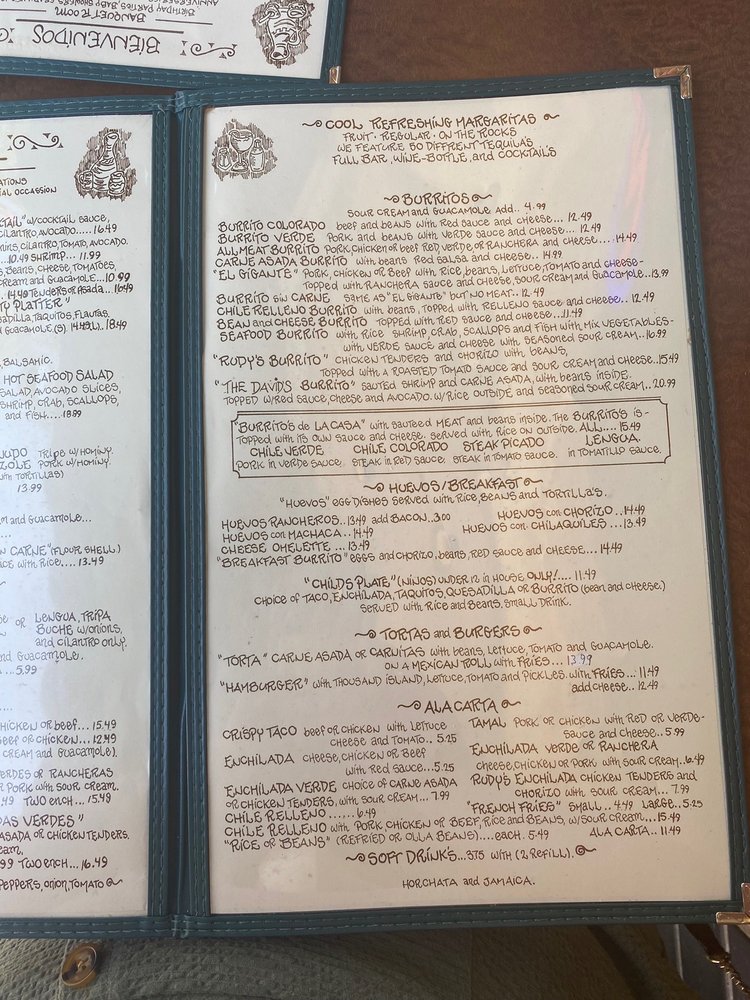 BIENVENIDOS
BANQUET ROOM
BIRTHDAY PARTIES, BABY SHOWERS,
ATIONS
IAL OCCASSION
KTAIL" w/cocktail sauce,
cilantro, avocado.....16.49
cilantro, tomato, avocado.
..10.49 SHRIMP... 11.99
beans, cheese, tomatoes,
cream and guacamole...10.99
.. 14.49 Tenders or Asada.. 16.49
TY PLATTER"
sadilla, taquitos, flautas,
guacamole,(s). 14.49 (L). 18.49
, balsamic.
HOT SEAFOOD SALAD
SALAD, AVOCADO SLICES,
SHRIMP, CRAB, SCALLOPS,
and FISH....18.99
NUDO TRIPE w/HOMINY.
ZOLE PORK w/HOMINY.
with TORTILLAS)
13.99
m and Guacamole...
N CARNE" (FLOUR SHELL)
ce with Rice.....13.49
se or LENGUA, TRIPA
BUCHE w/onions,
and cilantro only.
nd Guacamole.
... 5.99
CHICKEN or beef... 15.49
beef or CHICKEN... 12.49
CREAM and Guacamole).
VERDES or RANCHERAS
or PORK with sour cream.
.49 TWO ENCH... 15.49
DAS VERDES"
ASADA or CHICKEN TENDERS.
eam,
.99 TWO ENCH... 16.49
PEPPERS, ONION, TOMATO
COOL REFRESHING MARGARITAS
FRUIT · REGULAR · ON THE ROCKS
WE FEATURE 50 DIFFRENT TEQUILA'S
FULL BAR, WINE-BOTTLE, and COCKTAIL'S
BURRITOS
SOUR CREAM and GUACAMOLE add.. 4.99
BURRITO COLORADO beef and beans with Red sauce and cheese... 12.49
BURRITO VERDE Pork and beans with Verde sauce and cheese... 12.49
ALL MEAT BURRITO Pork, chicken or beef Red, Verde, or Ranchera and cheese.....14.49
CARNE ASADA BURRITO with beans, Red salsa and cheese... 14.99
"EL GIGANTE" Pork, chicken or Beef with Rice, beans, Lettuce, Tomato and cheese-
Topped with RANCHERA sauce and cheese, sour cream and Guacamole..13.99
BURRITO SIN CARNE same as "EL GIGANTE" but no meat.. 12.49
CHILE RELLENO BURRITO with beans, Topped with Relleno sauce and cheese.. 12.49
BEAN and CHEESE BURRITO Topped with Red sauce and cheese...11.49
SEAFOOD BURRITO with Rice Shrimp, Crab, Scallops and Fish with mix vegetables-
with Verde sauce and cheese with seasoned sour cream..16.99
"RUDY'S BURRITO" chicken tenders and chorizo with beans,
Topped with a roasted Tomato sauce and sour cream and cheese..15.49
"THE DAVID'S BURRITO" sauted shrimp and carne asada, with beans inside.
Topped w/Red sauce, cheese and avocado. w/Rice outside and seasoned sour cream..20.99
"BURRITO'S de LA CASA" with sauteed meat and beans inside. The burrito's is-
Topped with its own sauce and cheese. served with Rice on outside. ALL.... 15.49
CHILE VERDE CHILE COLORADO STEAK PICADO LENGUA.
Pork in verde sauce. Steak in Red sauce. Steak in tomato sauce. in tomatillo sauce.
HUEVOS/BREAKFAST
"Huevos" egg dishes served with Rice, Beans and Tortilla's.
HUEVOS RANCHEROS..13.49 add BACON..3.00 HUEVOS con CHORIZO.. 14.49
HUEVOS con MACHACA.. 14.49 HUEVOS con CHILAQUILES... 13.49
CHEESE OMELETTE ... 13.49
"BREAKFAST BURRITO" eggs and chorizo, beans, Red sauce and cheese.... 14.49
"CHILD'S PLATE" (NIÑOS) UNDER 12 IN HOUSE ONLY!.... 11.49
choice of Taco, Enchilada, Taquitos, Quesadilla or Burrito (bean and cheese.)
served with Rice and Beans. Small drink.
TORTAS and BURGERS
"TORTA" Carne Asada or Carnitas with beans, Lettuce, Tomato and Guacamole.
on a Mexican Roll with FRIES... 13.99
"HAMBURGER" with Thousand Island, Lettuce, Tomato and Pickles. with FRIES... 11.49
add cheese.. 12.49
ALA CARTA
CRISPY TACO beef or chicken with Lettuce
cheese and Tomato.. 5.25
ENCHILADA cheese, chicken or Beef
with Red sauce...5.25
ENCHILADA VERDE choice of Carne Asada
or chicken tenders, with sour cream... 7.99
CHILE RELLENO ...... 6.49
TAMAL Pork or chicken with Red or Verde-
sauce and cheese.. 5.99
ENCHILADA VERDE or RANCHERA
cheese, chicken or Pork with sour cream..6.49
RUDY'S ENCHILADA chicken tenders and
chorizo with sour cream... 7.99
"FRENCH FRIES" Small.. 4.49 Large..5.25
CHILE RELLENO with Pork, chicken or Beef, Rice and Beans, w/sour cream...15.49
"RICE or BEANS" (Refried or Olla Beans)....each. 5.49 ALA CARTA.. 11.49
SOFT DRINK'S... 3.75 with (2 Refill).
HORCHATA and JAMAICA.